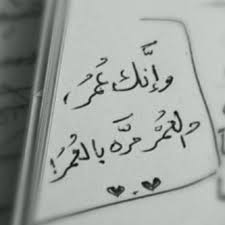 وإنَّك عُمرُ،
والعُمْر مرَّه بالعُمُر!